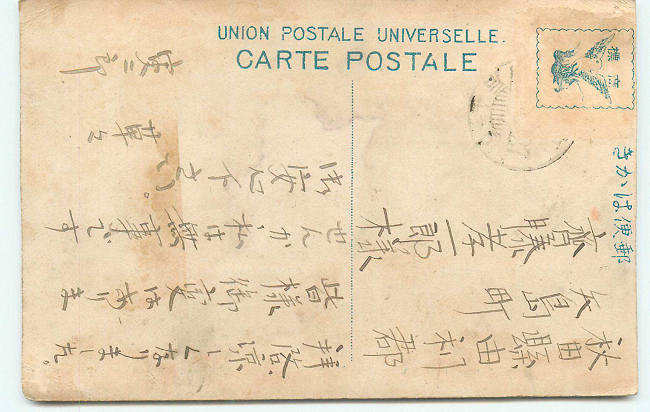 UNION POSTALE UNIVERSELLE.
CARTE POSTALE
郵便はかき
秋田縣由利郡
矢島町
齋藤孝一郎様
拝啓 涼しくなりました。
皆様御変はありま
せんか 私は無事です
御安心下さい。
草々